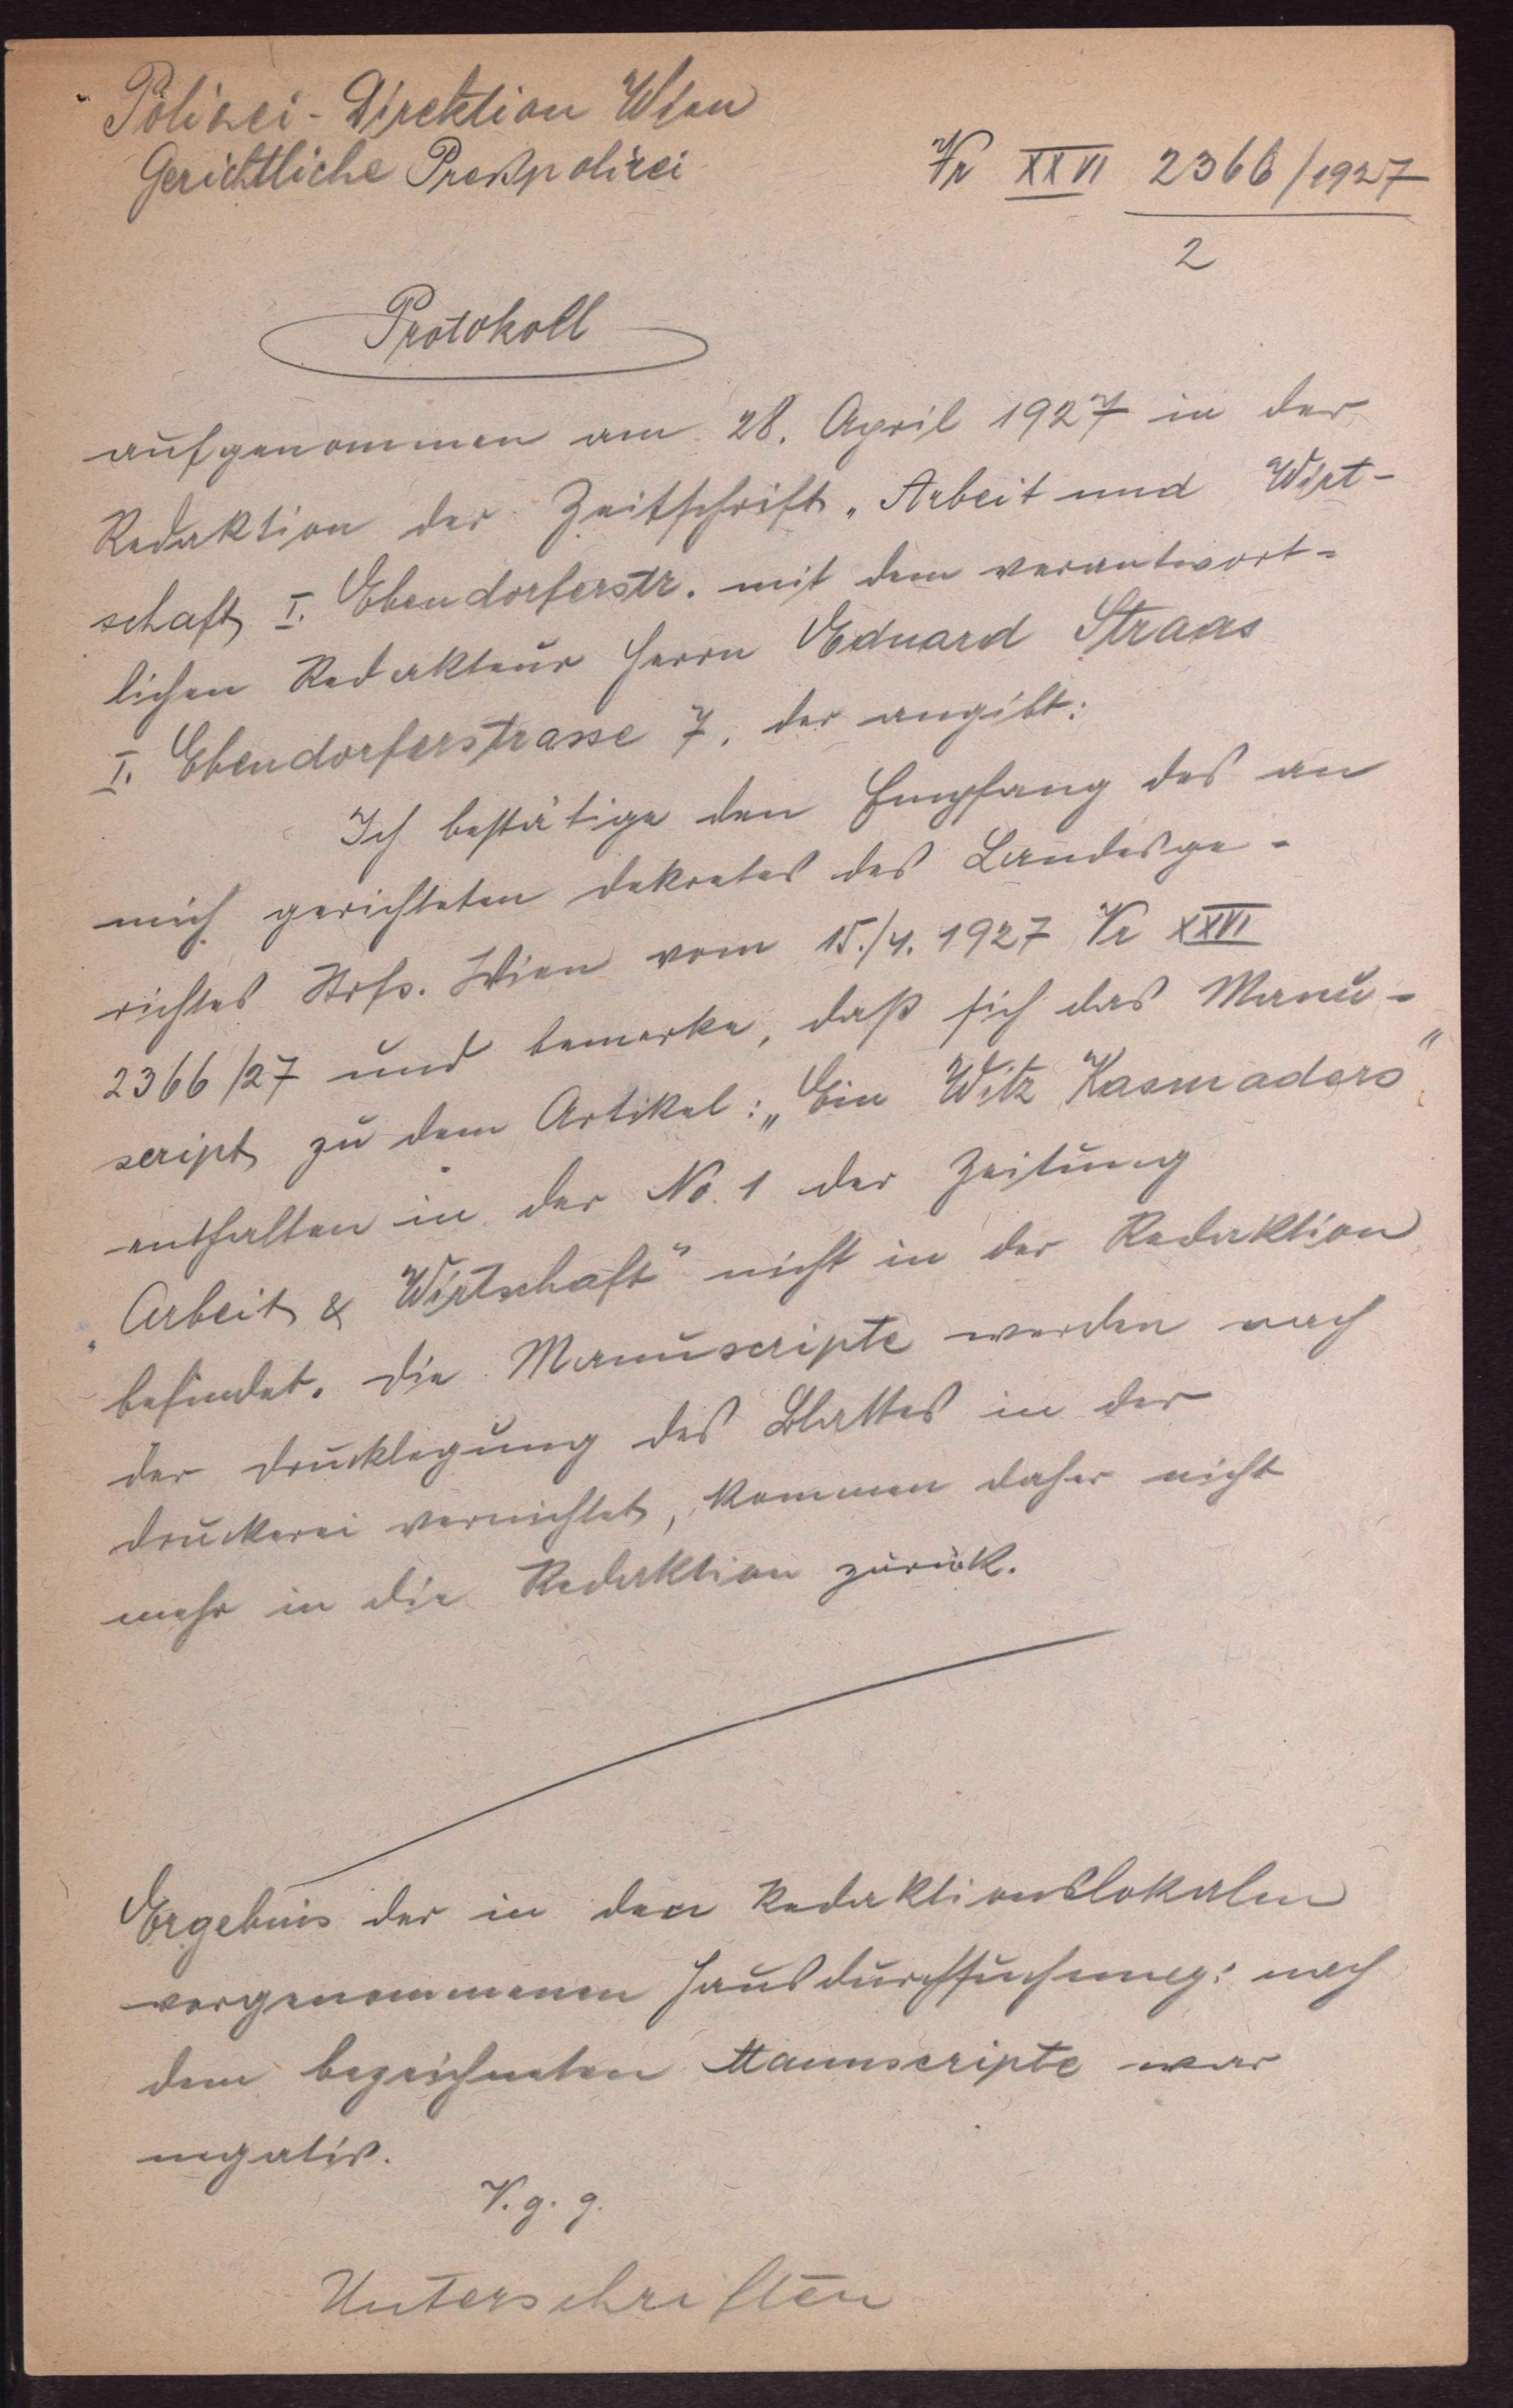 Polizei-Direktion Wien
Gerichtliche Preßpolizei
Vr XXVI 2366/1927
2
Protokoll
aufgenommen am 28. April 1927 in der
Redaktion der Zeitschrift „Arbeit und Wirt-
schaft I. Ebendorferstr. mit dem verantwort-
lichen Redakteur Herrn Eduard Straas
I. Ebendorferstrasse 7. der angibt:
Ich bestätige den Empfang des an
mich gerichteten Dekretes des Landesge-
richtes Strfs. Wien vom 15./4. 1927 Vr XXVI
2366/27 und bemerke, daß sich das Manu-
script zu dem Artikel: „Ein Witz Kasmaders"
enthalten in der No. 1 der Zeitung
„Arbeit & Wirtschaft" nicht in der Redaktion
befindet. Die Manuscripte werden nach
der Drucklegung des Blattes in der
Druckerei vernichtet, kommen daher nicht
mehr in die Redaktion zurück.
Ergebnis der in den Redaktionslokalen
vorgenommenen Hausdurchsuchung: nach
dem bezeichneten Manuscripte war
negativ.
V. g. g.
Unterschriften